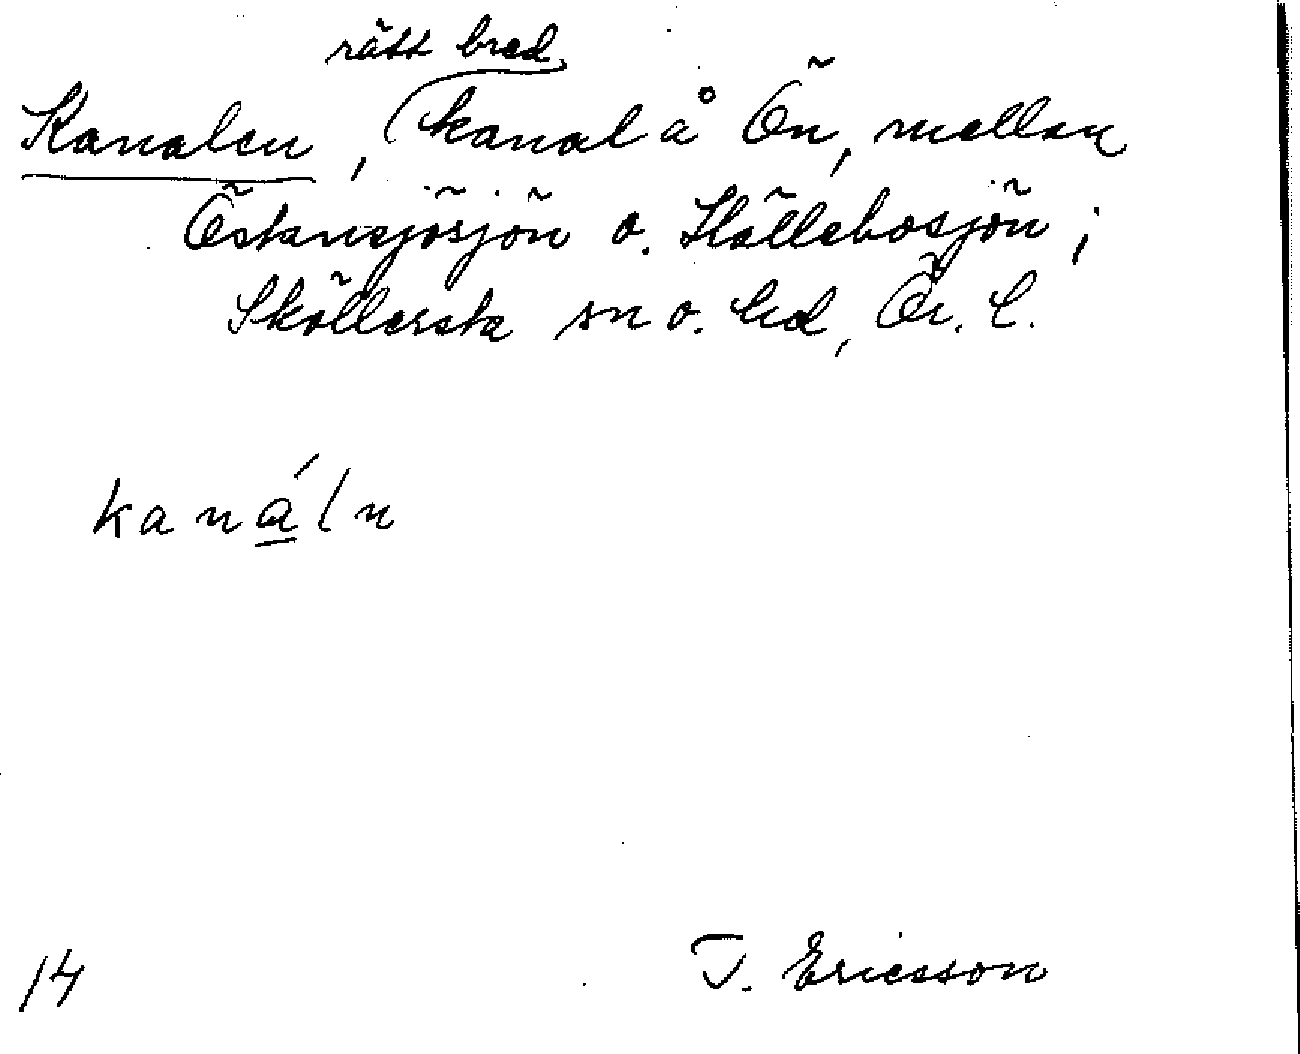 rätt bred
Kanalen, kanal å Ön, mellan
Östansjösjön o. Hällebosjön;
Sköllersta sn o. hd, Ör. l.
kanáln
14
T. Ericsson